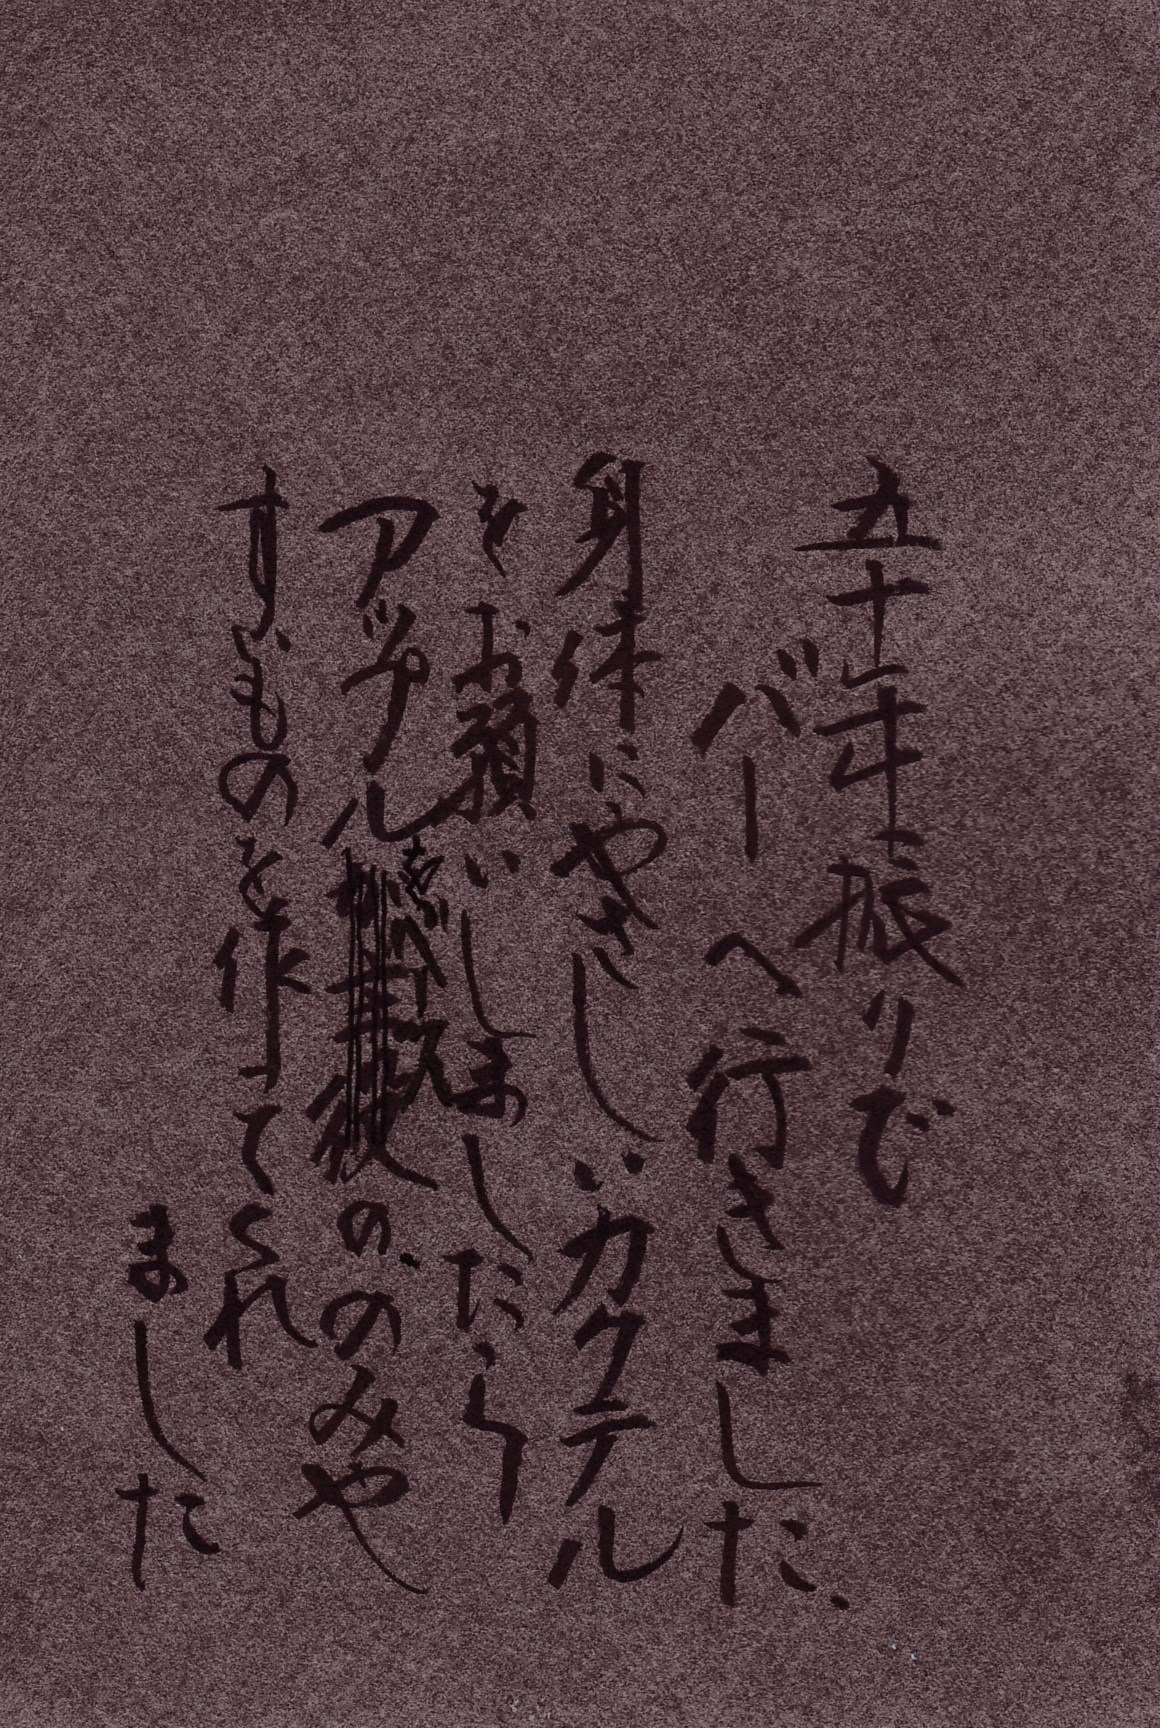 五十年振りで
バーへ行きました、
身体にやさしいカクテル
をお願いしましたら
アップルをベースの、のみや
すいものを作ってくれ
ました